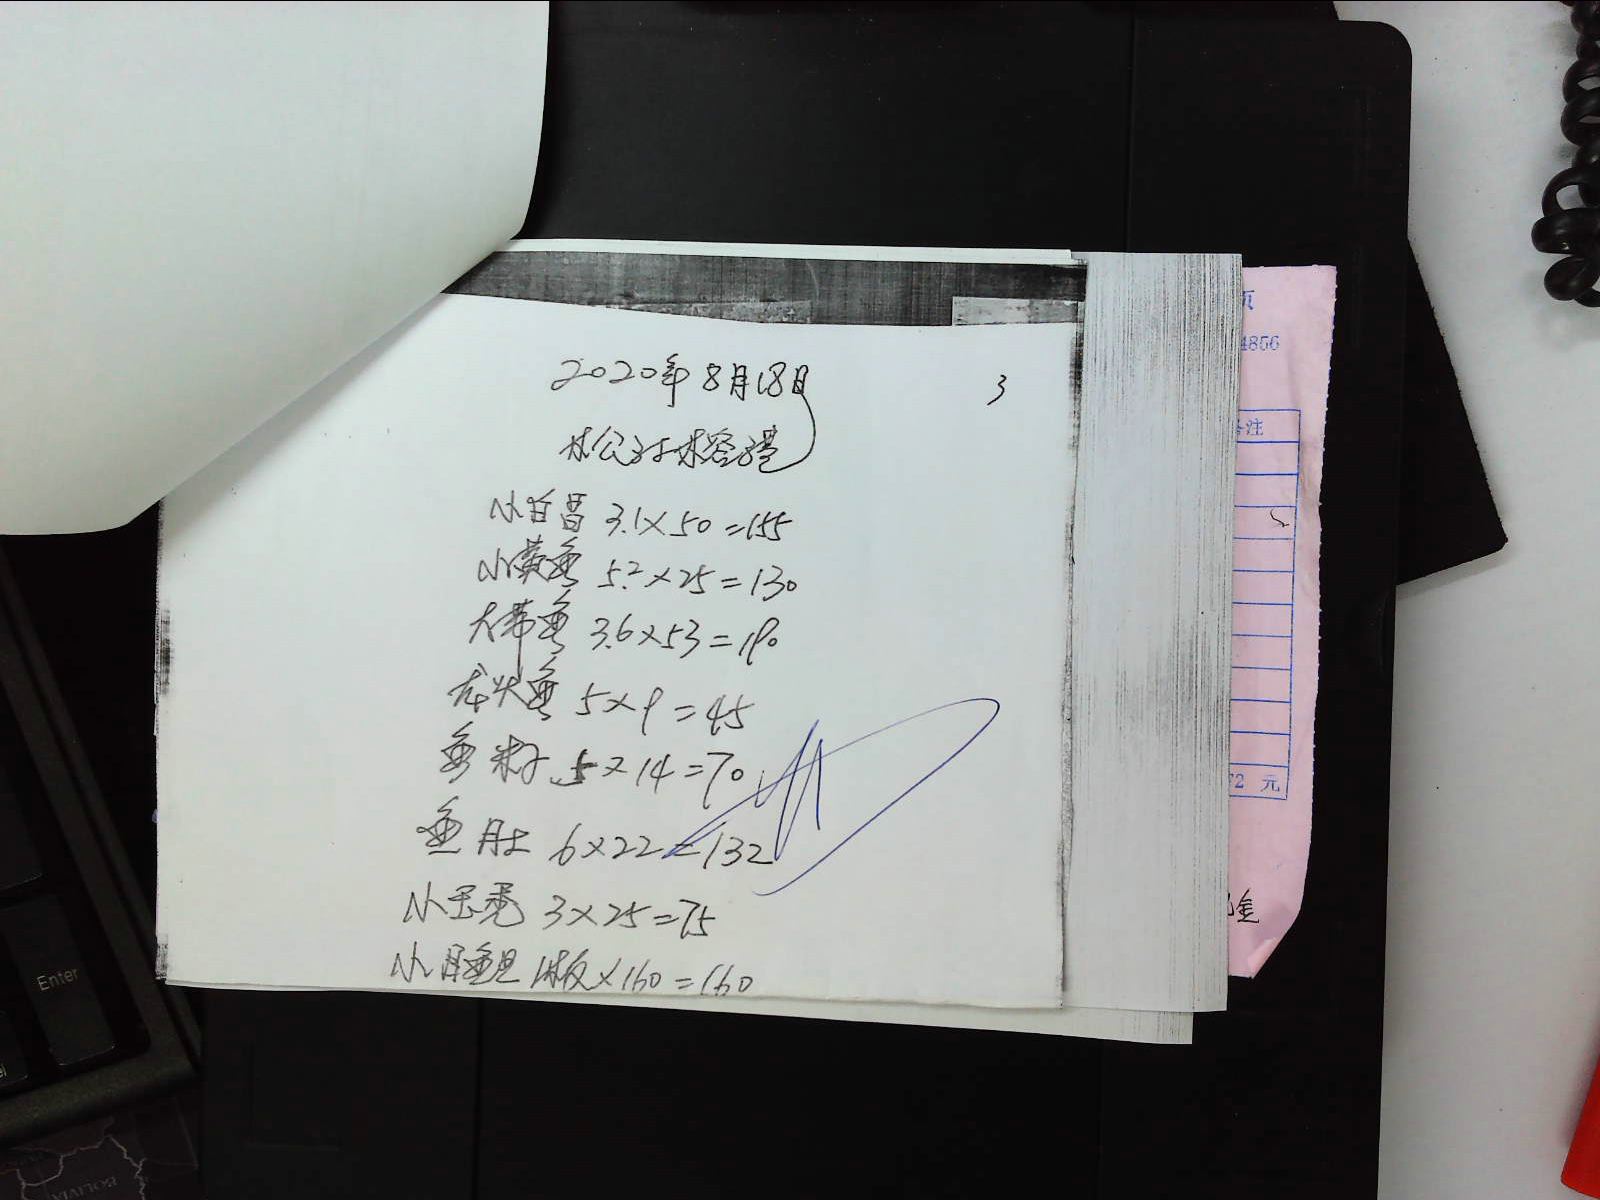 2020年8月18日
3
小白昌 3.1×50=155
小黄鱼 5.2×25=130
大带鱼 3.6×53=190
龙头鱼 5×9=45
鱼籽 5×14=70
鱼肚 6×22=132
小玉秃 3×25=75
小 1板×160=160
页
4856
备注
72 元
金
Enter
BOLIVIA